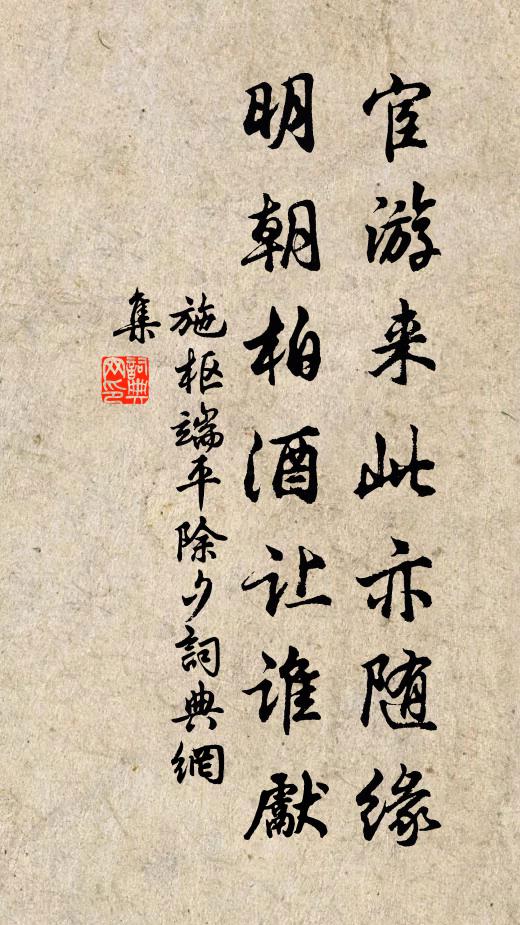 宦游来此亦随缘
明朝柏酒让谁献
施枢端平除夕詞典網
集
詞典
网印